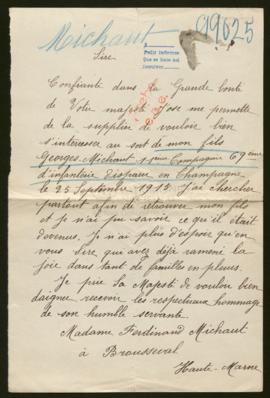 Michaut
99625
Petit Infirme
Sire
Confiante dans la Grande bonté
de Votre majesté j'ose me permettre
de la supplier de vouloir bien
s'interesser au sort de mon fils
Georges Michaut 1ère Compagnie 69ème
d'infanterie disparue en Champagne
le 25 Septembre 1915. J'ai chercher
partout afin de retrouver mon fils
et je n'ai pu savoir ce qu'il était
devenus. Je n'ai plus d'espoir qu'en
vous Sire qui avez déjà ramené la
joie dans tant de familles en pleurs.
Je prie Sa Majesté de vouloir bien
daigner recevoir les respectueux hommages
de son humble servante.
Madame Ferdinand Michaut
à Brousseval
Haute-Marne